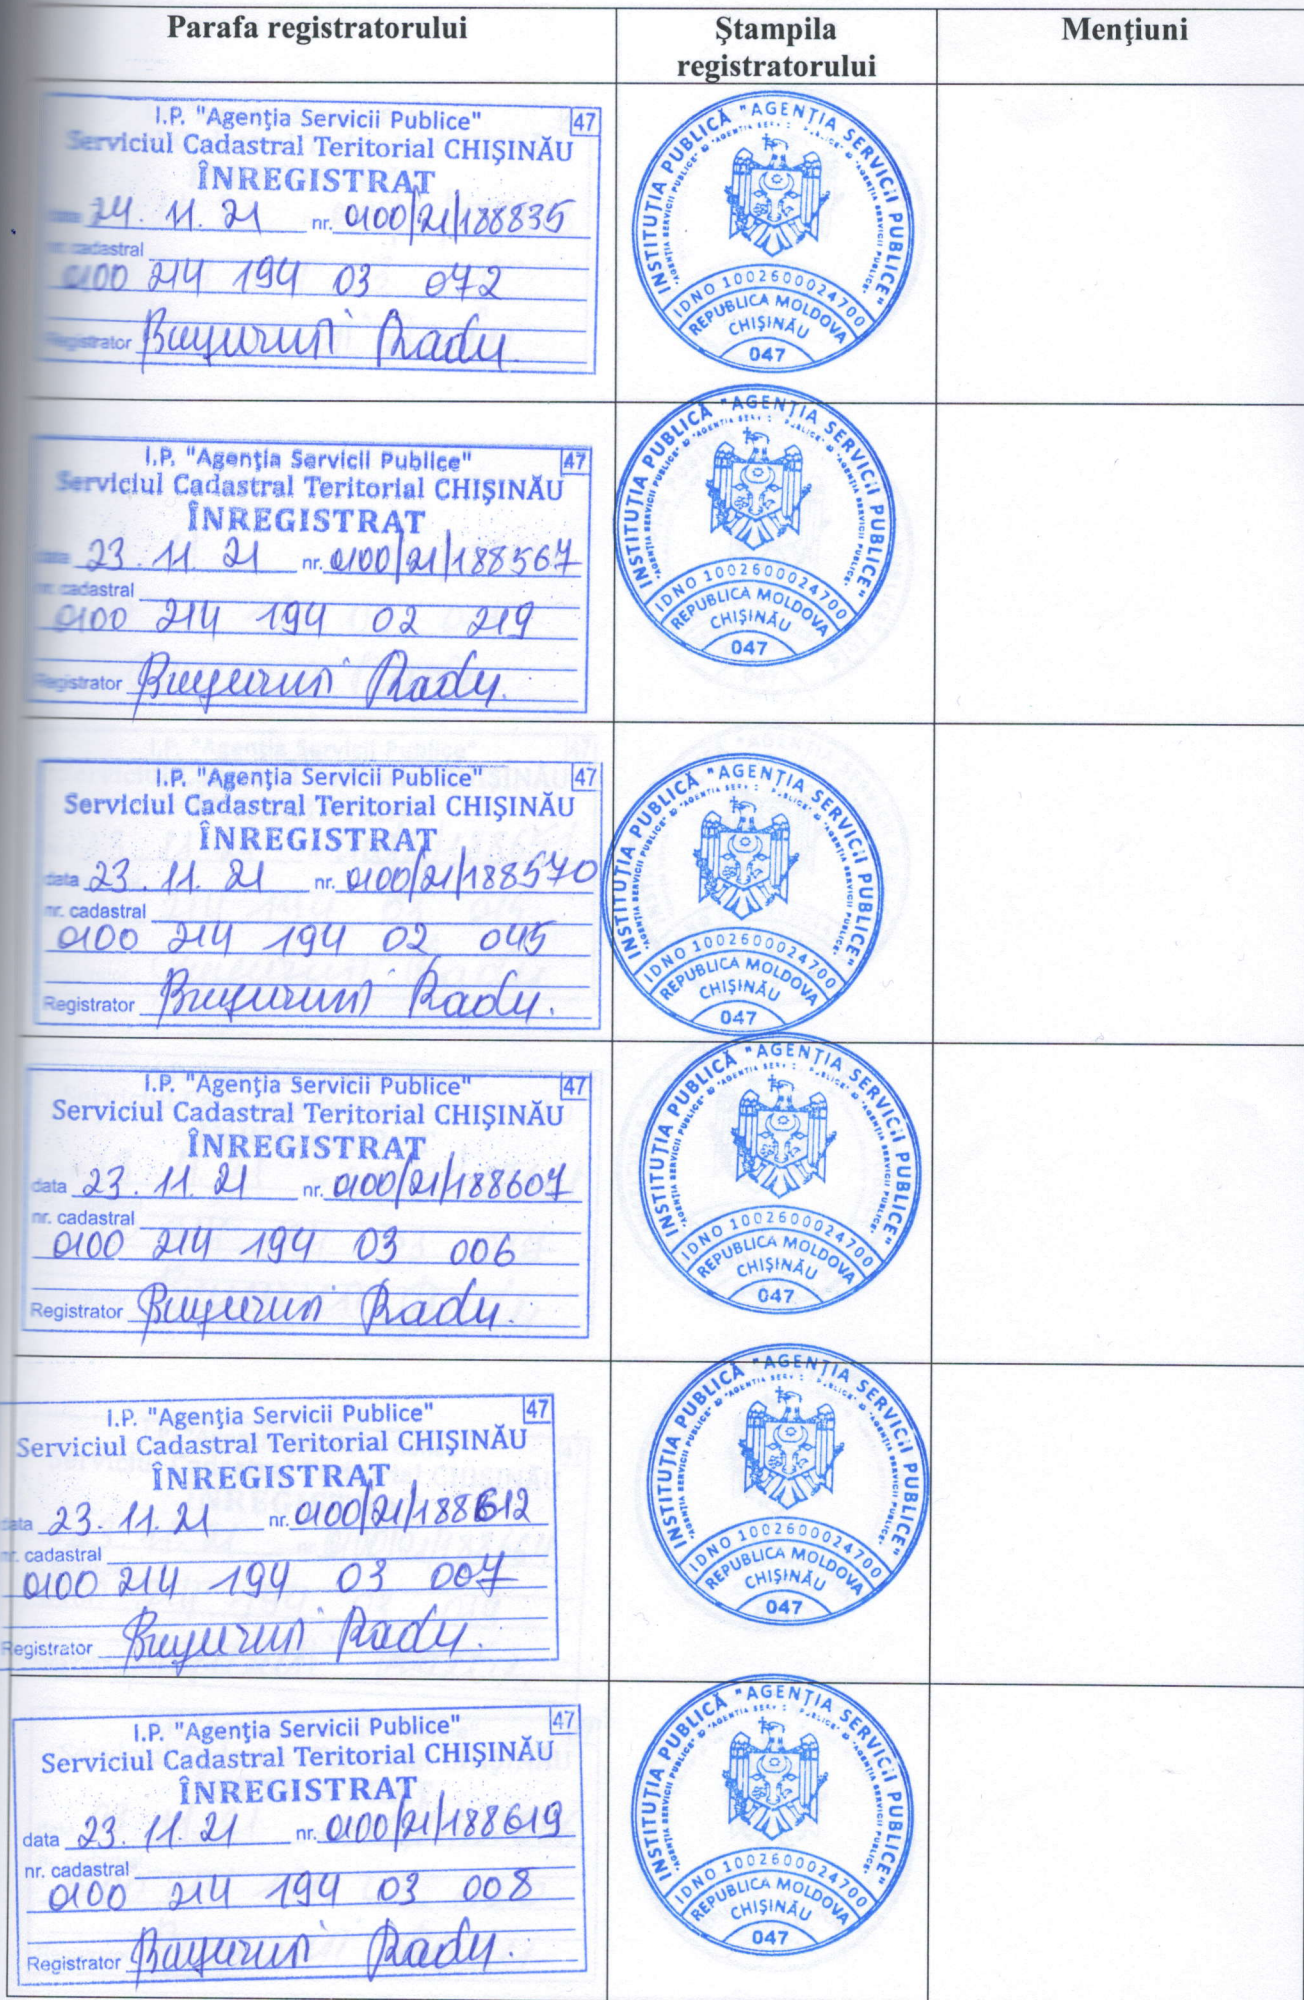 Parafa registratorului
Ştampila registratorului
Menţiuni
I.P. "Agenţia Servicii Publice" 47
Serviciul Cadastral Teritorial CHIŞINĂU
ÎNREGISTRAT
data 24. 11. 21 nr. 0100/21/188835
nr. cadastral
0100 214 194 03 072
Registrator Radu
INSTITUŢIA PUBLICĂ "AGENŢIA SERVICII PUBLICE"
IDNO 1002600024700
REPUBLICA MOLDOVA
CHIŞINĂU
047
I.P. "Agenţia Servicii Publice" 47
Serviciul Cadastral Teritorial CHIŞINĂU
ÎNREGISTRAT
data 23. 11. 21 nr. 0100/21/188567
nr. cadastral
0100 214 194 02 219
Registrator Radu.
INSTITUŢIA PUBLICĂ "AGENŢIA SERVICII PUBLICE"
IDNO 1002600024700
REPUBLICA MOLDOVA
CHIŞINĂU
047
I.P. "Agenţia Servicii Publice" 47
Serviciul Cadastral Teritorial CHIŞINĂU
ÎNREGISTRAT
data 23. 11. 21 nr. 0100/21/188570
nr. cadastral
0100 214 194 02 045
Registrator Radu.
INSTITUŢIA PUBLICĂ "AGENŢIA SERVICII PUBLICE"
IDNO 1002600024700
REPUBLICA MOLDOVA
CHIŞINĂU
047
I.P. "Agenţia Servicii Publice" 47
Serviciul Cadastral Teritorial CHIŞINĂU
ÎNREGISTRAT
data 23. 11. 21 nr. 0100/21/188607
nr. cadastral
0100 214 194 03 006
Registrator Radu.
INSTITUŢIA PUBLICĂ "AGENŢIA SERVICII PUBLICE"
IDNO 1002600024700
REPUBLICA MOLDOVA
CHIŞINĂU
047
I.P. "Agenţia Servicii Publice" 47
Serviciul Cadastral Teritorial CHIŞINĂU
ÎNREGISTRAT
data 23. 11. 21 nr. 0100/21/188612
nr. cadastral
0100 214 194 03 007
Registrator Radu.
INSTITUŢIA PUBLICĂ "AGENŢIA SERVICII PUBLICE"
IDNO 1002600024700
REPUBLICA MOLDOVA
CHIŞINĂU
047
I.P. "Agenţia Servicii Publice" 47
Serviciul Cadastral Teritorial CHIŞINĂU
ÎNREGISTRAT
data 23. 11. 21 nr. 0100/21/188619
nr. cadastral
0100 214 194 03 008
Registrator Radu.
INSTITUŢIA PUBLICĂ "AGENŢIA SERVICII PUBLICE"
IDNO 1002600024700
REPUBLICA MOLDOVA
CHIŞINĂU
047